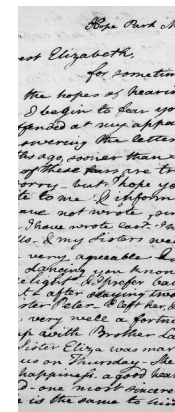 Hope Park M
est Elizabeth,
for sometim
the hopes of hearin
I begin to fear yo
fended at my appa
swering the letter
ks ago, sooner than
of these fears are tr
orry - but I hope yo
te to me & inform
ave not wrote, sin
I have wrote last. I h
us. & my sisters wer
very agreeable
Dancing you know
elight I prefer ba
t after staying two
ster Peter,
very well a fortni
up with Brother La
Sister Eliza was m
us on Thursday She
happiness. a good hear
d - one most sincere
e is the same to him